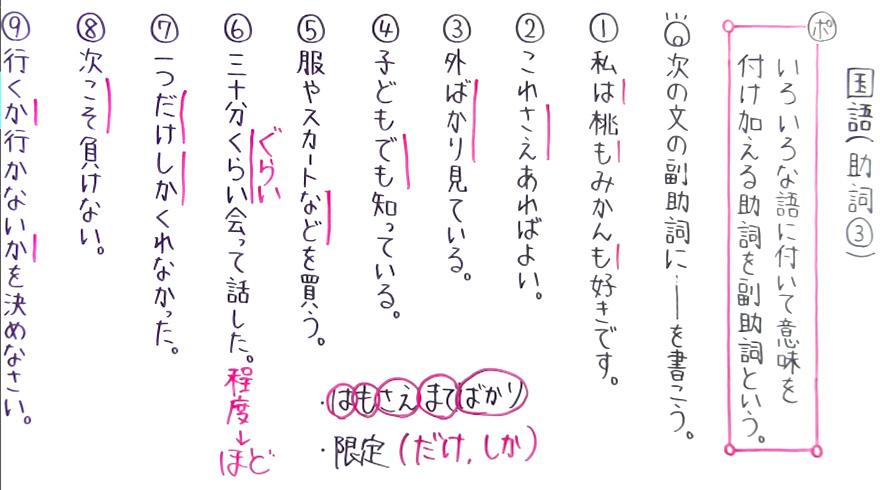 国語(助詞③)
ポ
いろいろな語に付いて意味を
付け加える助詞を副助詞という。
次の文の副助詞に――を書こう。
①私は桃もみかんも好きです。
②これさえあればよい。
③外ばかり見ている。
④子どもでも知っている。
⑤服やスカートなどを買う。
⑥三十分くらい会って話した。
ぐらい
程度→ほど
⑦一つだけしかくれなかった。
⑧次こそ負けない。
⑨行くか行かないかを決めなさい。
・はもさえまでばかり
・限定(だけ,しか)